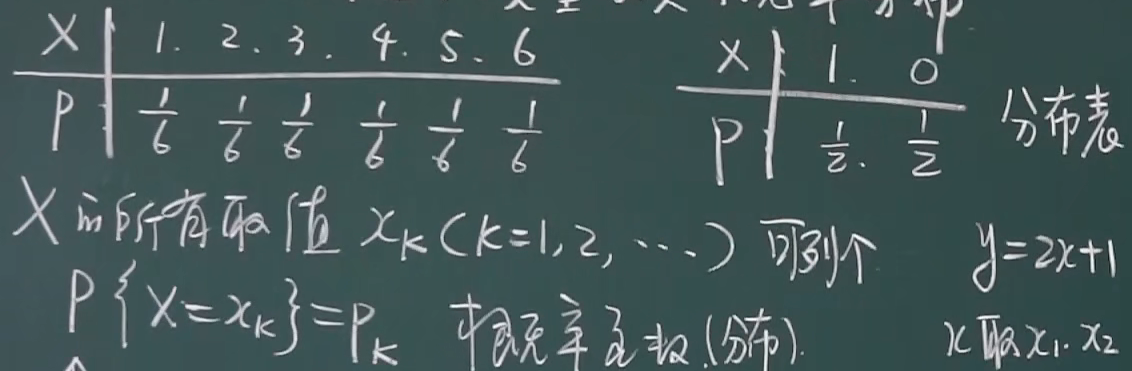 X 1. 2. 3. 4. 5. 6
P 1/6 1/6 1/6 1/6 1/6 1/6
X 1. 0
P 1/2. 1/2
分布表
X的所有取值 x_k (k=1,2,…) 可列个
P{X=x_k}=P_k 概率函数(分布).
y=2x+1
x取x₁.x₂